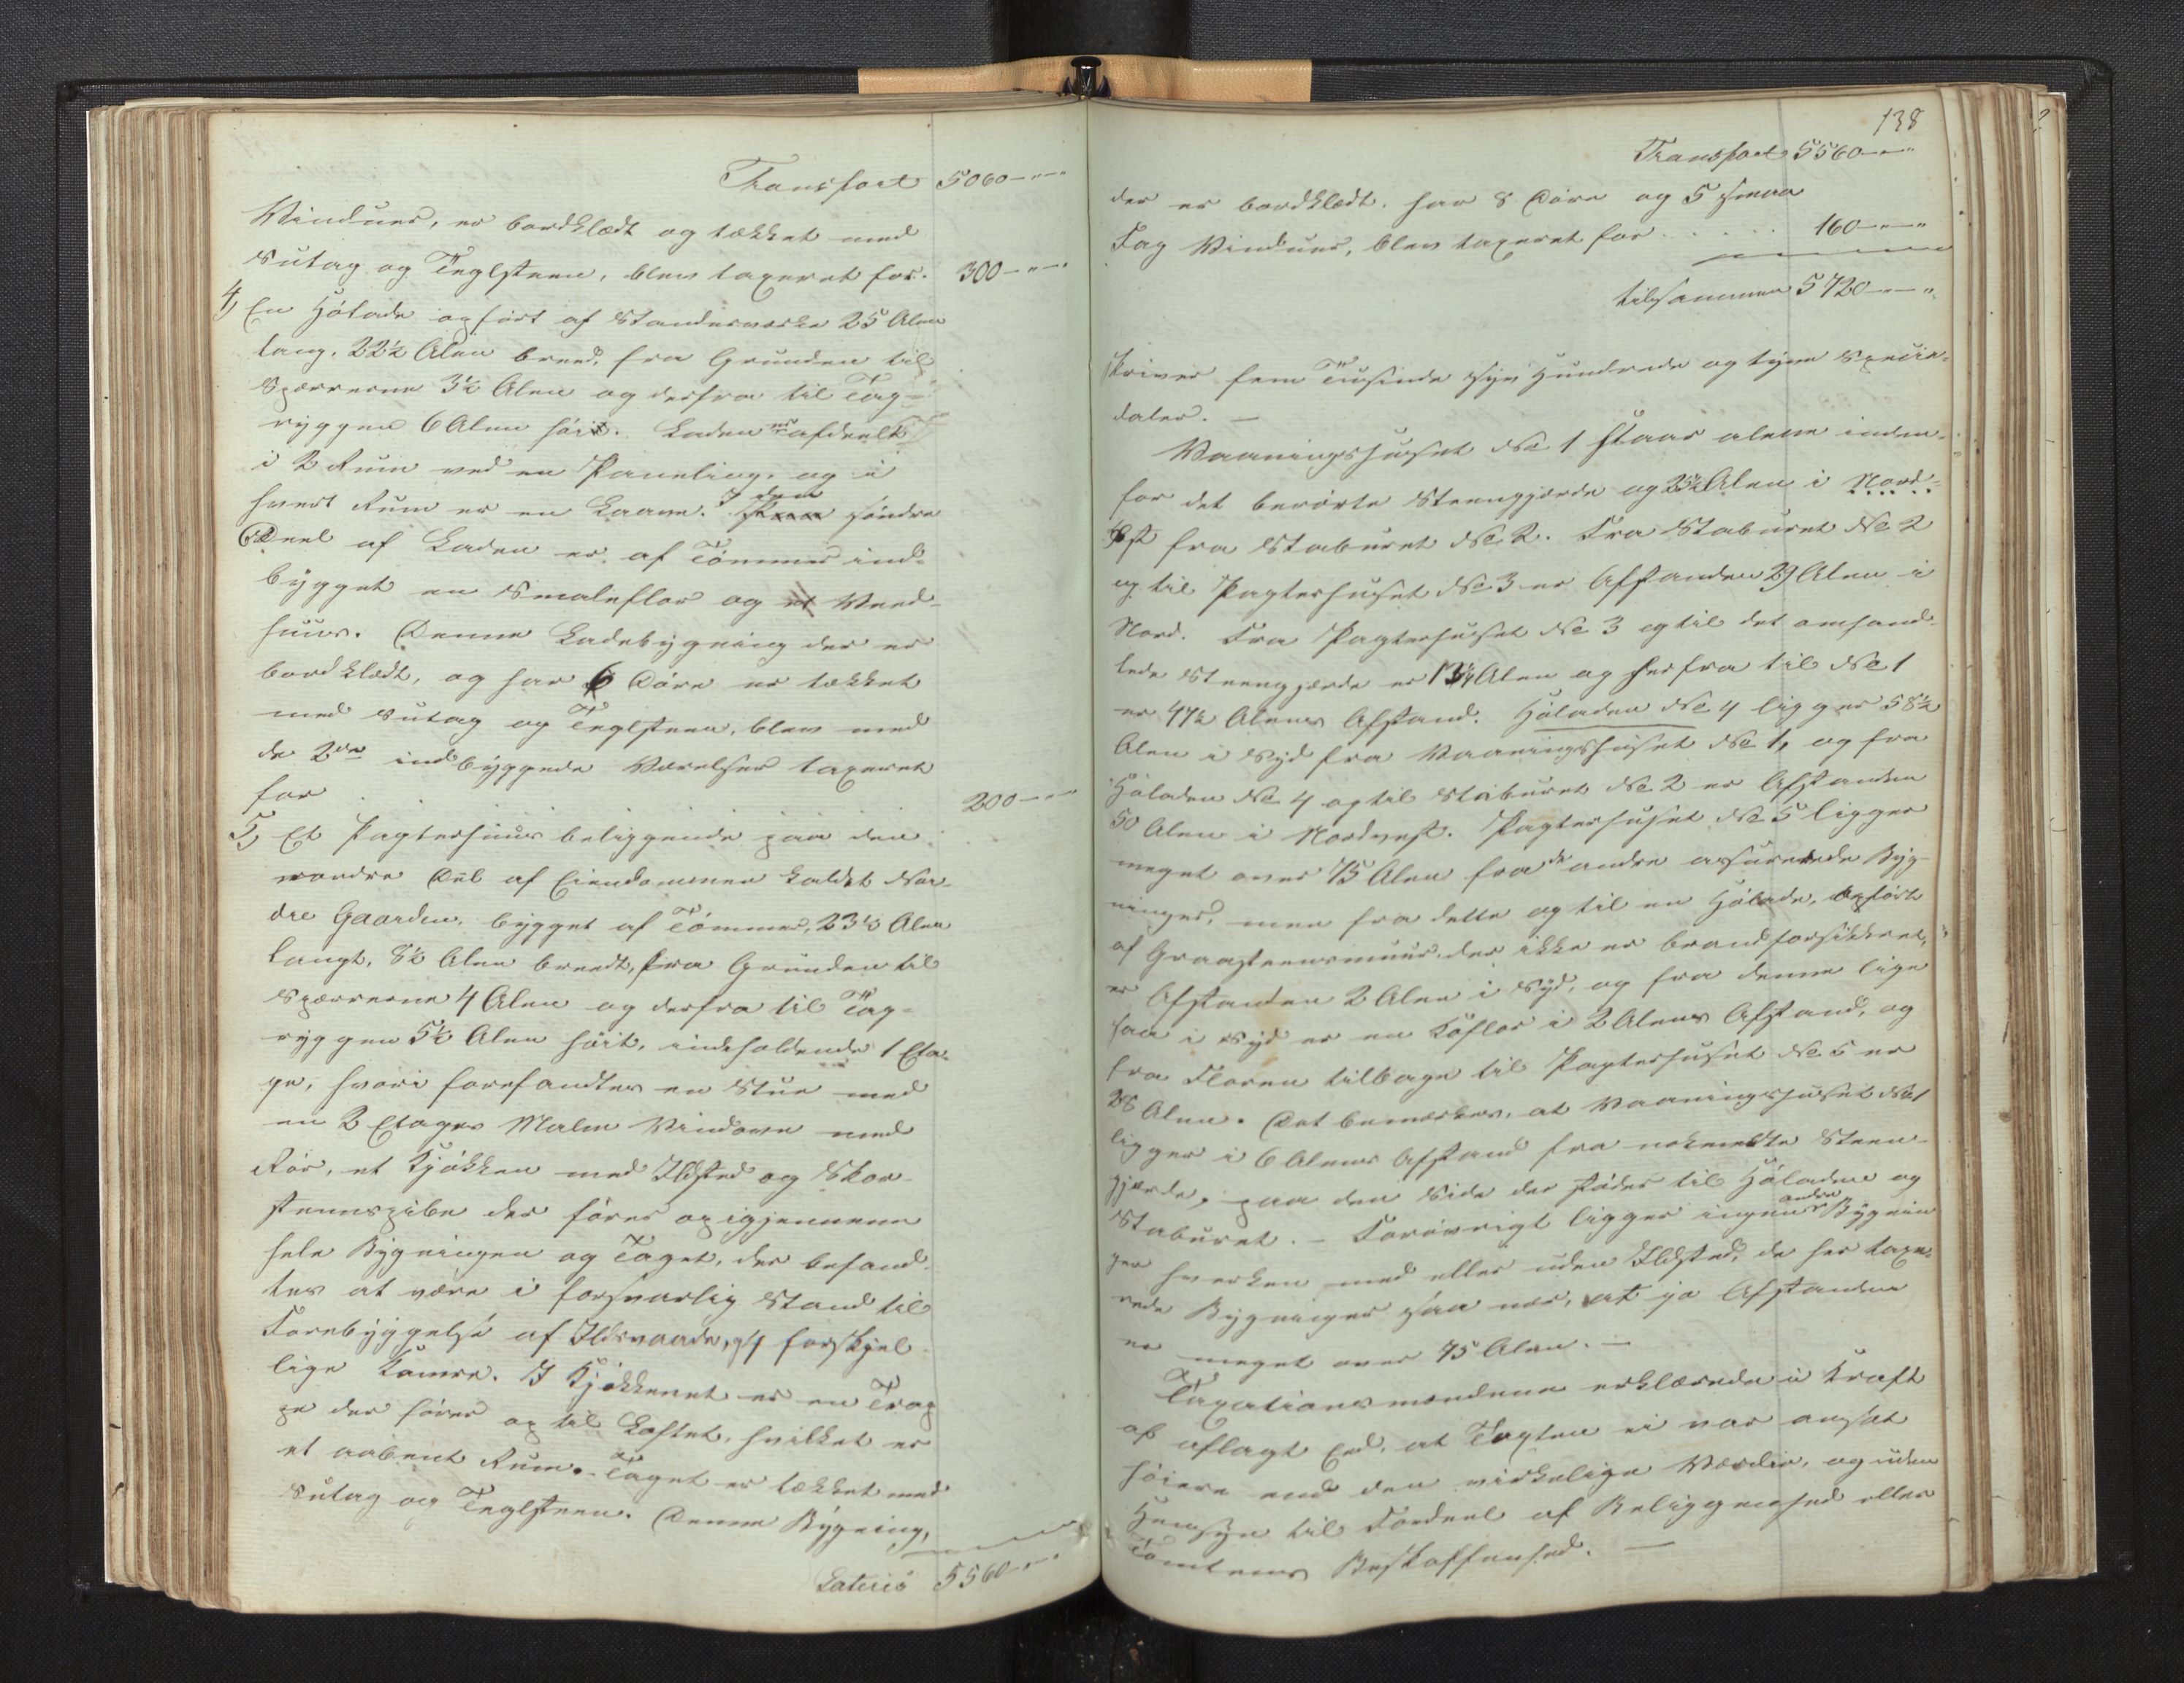 Transport 5060-"-"
Vinduer, er bordklædt og tækket med
Sutag og Teglsteen, blev taxeret for. 300-"-"
4, En Hölade opfört af Standerværke 25 Alen
lang, 22½ Alen breed, fra Grunden til
Spærrerne 3½ Alen og derfra til Tag-
ryggen 6 Alen höi. Laden er afdeelt
i 2 Rum ved en Paneling, og i
hvert Rum er en Laave. I den söndre
Deel af Laden er af Tömmer ind-
bygget en Smaleflor og et Veed-
huus. Denne Ladebygning der er
bordklædt, og har 6 Döre er tækket
med Sutag og Teglsteen, blev med
de 2de indbyggede Værelser taxeret
for . . . 200-"-"
5, Et Pagterhuus beliggende paa den
nordre Del af Eiendommen kaldet Nor-
dre Gaarden, bygget af Tömmer, 23½ Alen
langt, 8½ Alen breedt, fra Grunden til
Spærrerne 4 Alen og derfra til Tag-
ryggen 5½ Alen höit, indeholdende 1 Eta-
ge, hvori forefandtes en Stue med
en 2 Etages Malm Vindovn med
Rör, et Kjökken med Ildsted og Skor-
steenspibe der förer op igjennem
hele Bygningen og Taget, der befand-
tes at være i forsvarlig Stand til
Forebyggelse af Ildsvaade, og 4 forskjel-
lige Kamre. I Kjökkenet er en Trap
pe der förer op til Loftet, hvilket er
et aabent Rum. Taget er tækket med
Sutag og Teglsteen. Denne Bygning,
Lateris 5560-"-"
138
Transport 5560-"-"
der er bordklædt, har 8 Döre og 5 smaa
Fag Vinduer, blev taxeret for . . . . . 160-"-"
tilsammen 5720-"-"
skriver fem Tusinde syv Hundrede og tyve Specie-
daler. —
Vaaningshuset No 1 staar alene inden-
for det berörte Steengjærde og 23½ Alen i Nord-
Øst fra Staburet No 2. Fra Staburet No 2
og til Pagterhuset No 3 er Afstanden 29 Alen i
Nord. Fra Pagterhuset No 3 og til det omhand-
lede Steengjærde er 13¼ Alen og herfra til No 1
er 47½ Alens Afstand. Höladen No 4 ligger 58½
Alen i Syd fra Vaaningshuset No 1, og fra
Höladen No 4 og til Staburet No 2 er Afstanden
50 Alen i Nordvest. Pagterhuset No 5 ligger
meget over 75 Alen fra de andre assurerede Byg-
ninger, men fra dette og til en Hölade, opfört
af Graasteensmuur, der ikke er brandforsikkret,
er Afstanden 2 Alen i Syd, og fra denne lige
saa i Syd er en Köflor i 2 Alens Afstand, og
fra Floren tilbage til Pagterhuset No 5 er
28 Alen. Det bemærkes, at Vaaningshuset No 1
ligger i 6 Alens Afstand fra nokmeldte Steen-
gjærde, paa den Side der stöder til Höladen og
Staburet. — Foröovrigt ligger ingen andre Bygnin
ger hverken med eller uden Ildsted, de her taxe-
rede Bygninger saa nær, at jo Afstanden
er meget over 75 Alen. —
Taxationsmændene erklærede i Kraft
af aflagt Eed, at Taxten ei var ansat
höiere end den virkelige Værdie, og uden
Hensyn til Fordeel af Beliggenhed eller
Tomtens Beskaffenhed. —